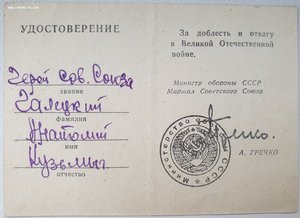 УДОСТОВЕРЕНИЕ
Герой Сов. Союза
звание
Галецкий
фамилия
Анатолий
имя
Кузьмич
отчество
За доблесть и отвагу
в Великой Отечественной
войне.
Министр обороны СССР
Маршал Советского Союза
Министерство обороны СССР
А. ГРЕЧКО